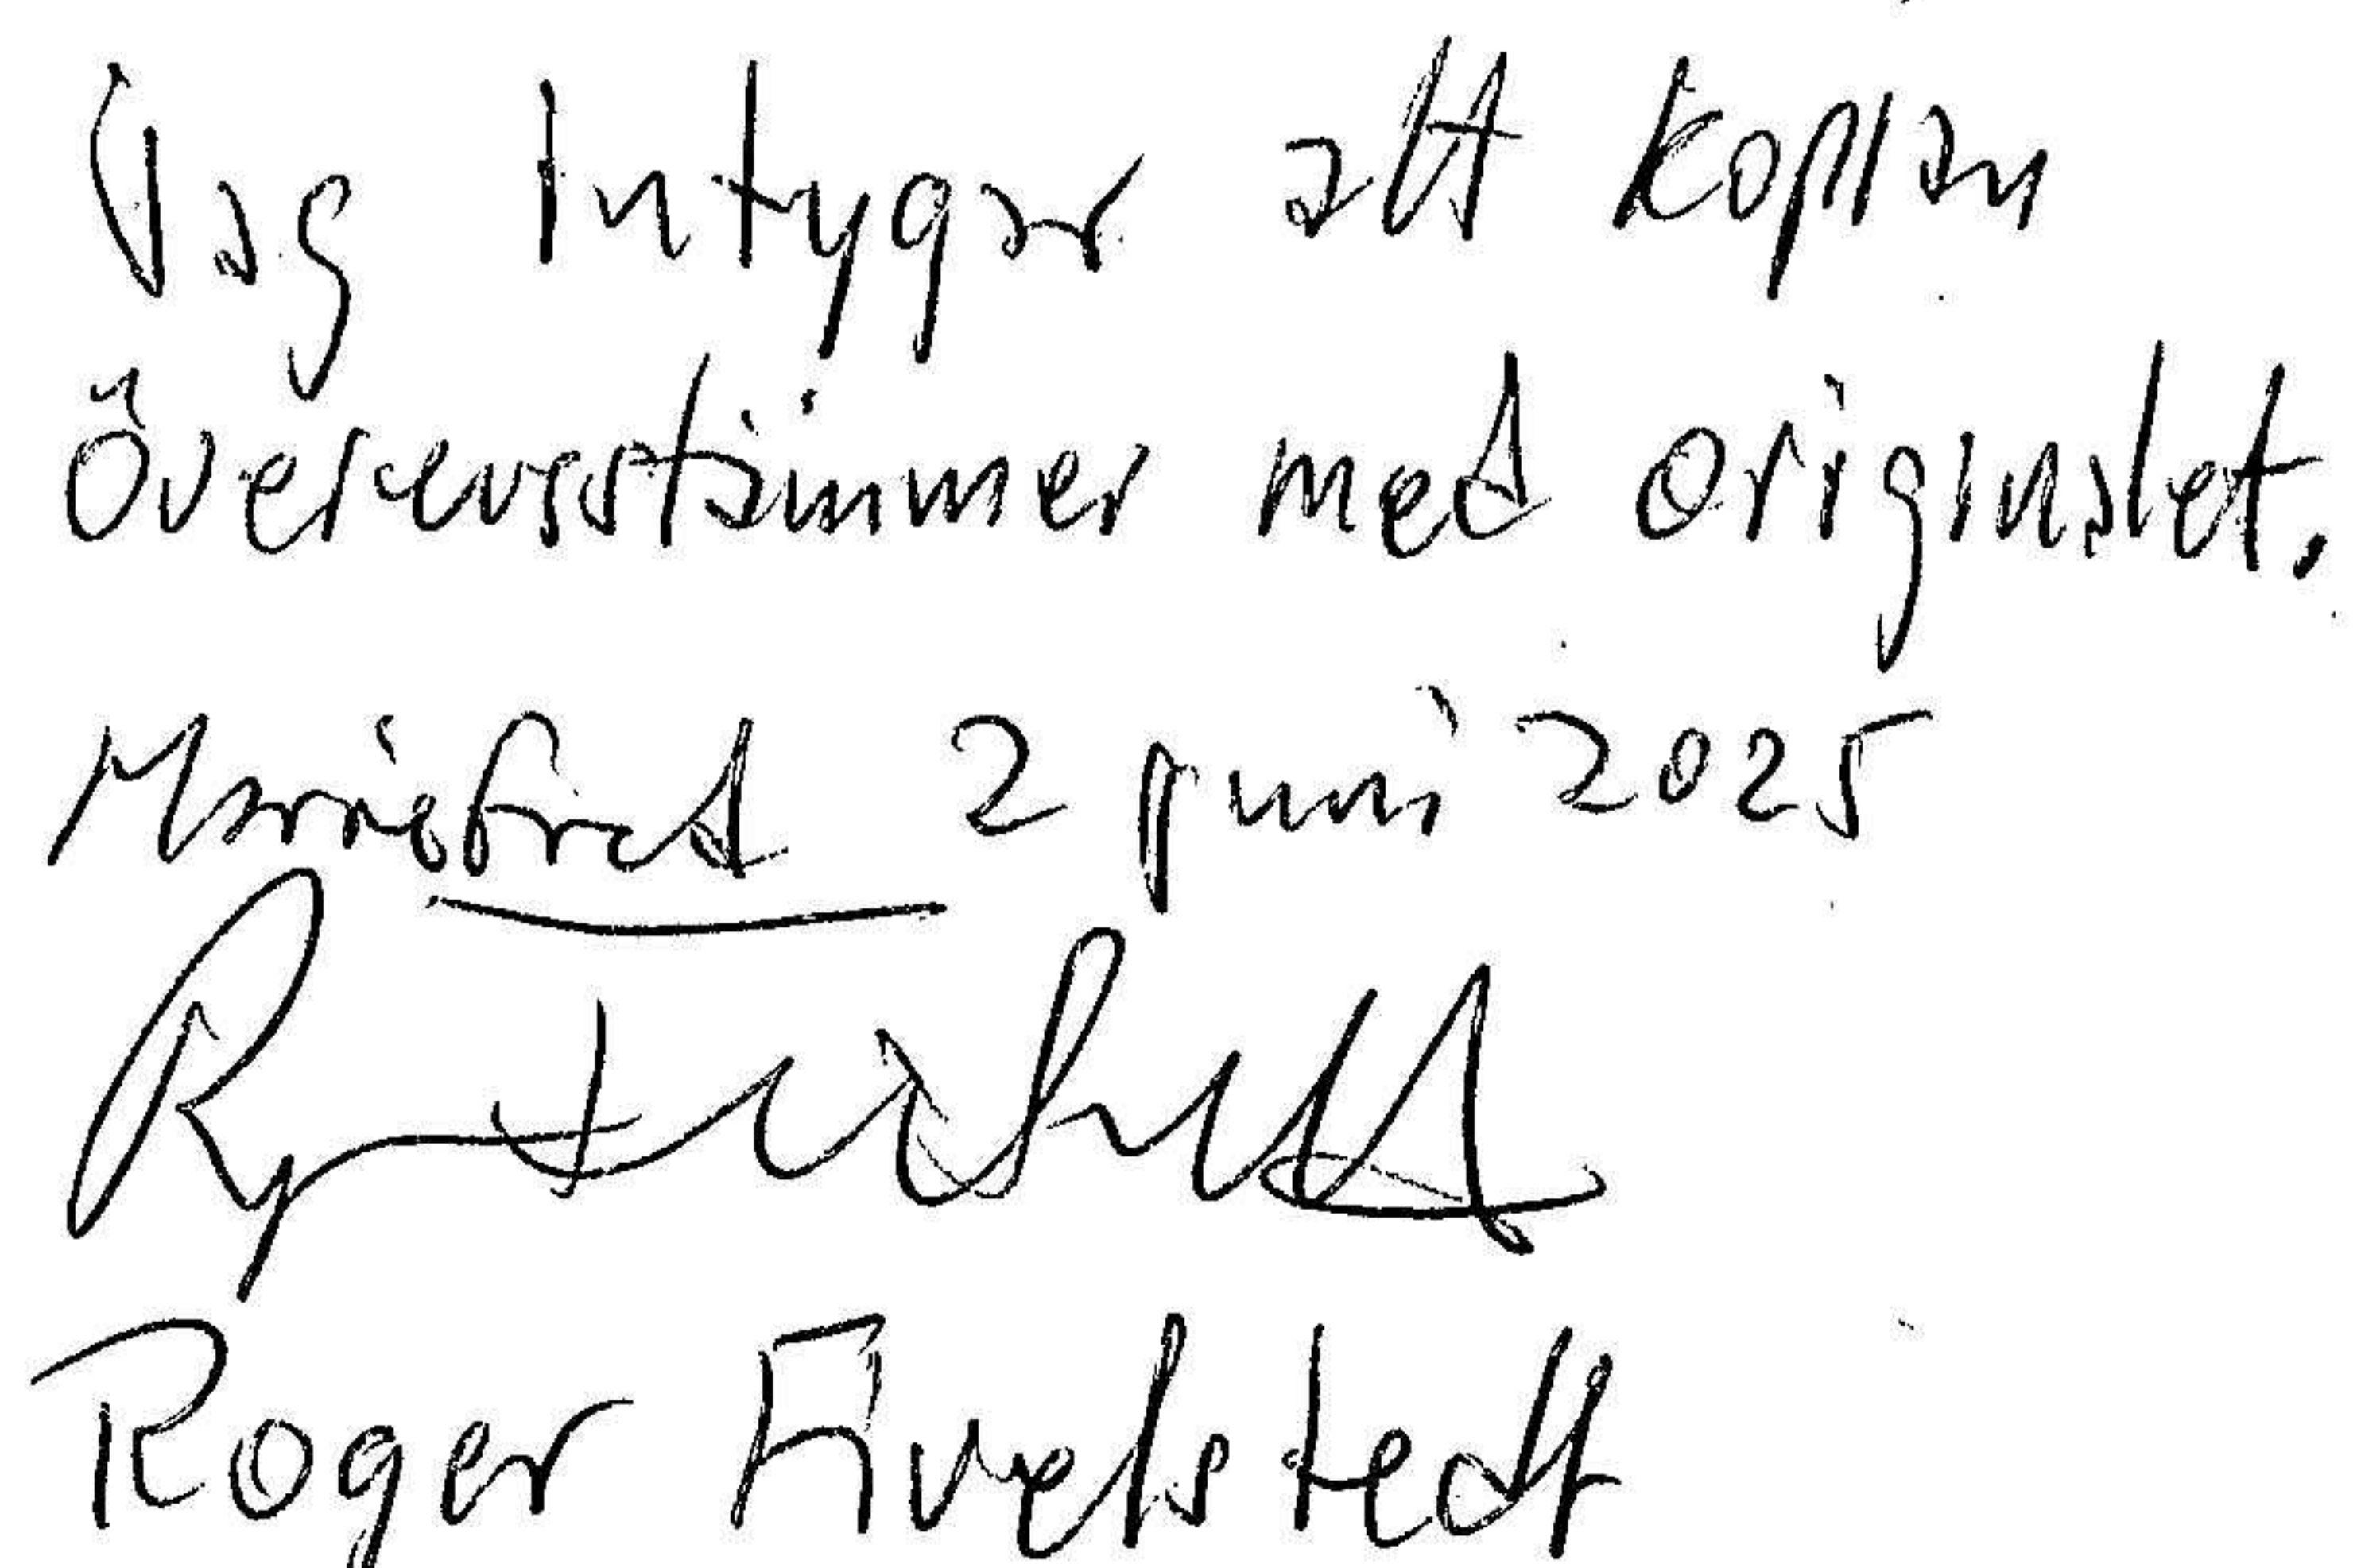 Jag intygar att kopian
överensstämmer med originalet.
Mariefred 2 juni 2025
Roger Avelstedt